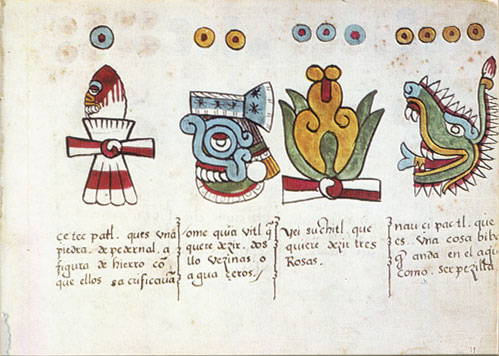 ce tec patl. ques vna
piedra. de pedernal. a
figura de hierro cõ.
que ellos sacrificavã
ome quia vitl q̃
quiere dezir. dos
llo vezinas. o
agua zeros.
Yei suchitl. que
quiere dezir tres
Rosas.
naui ci pactl. que
es. vna cosa biba
q̃ anda en el
como. ser pezilla